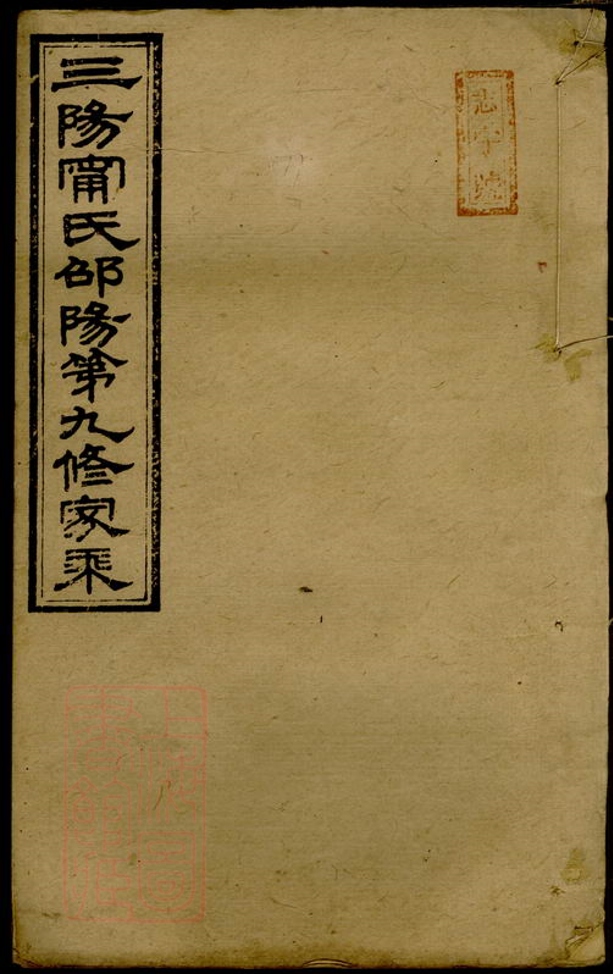 志字號
三陽甯氏邵陽第九修家乘